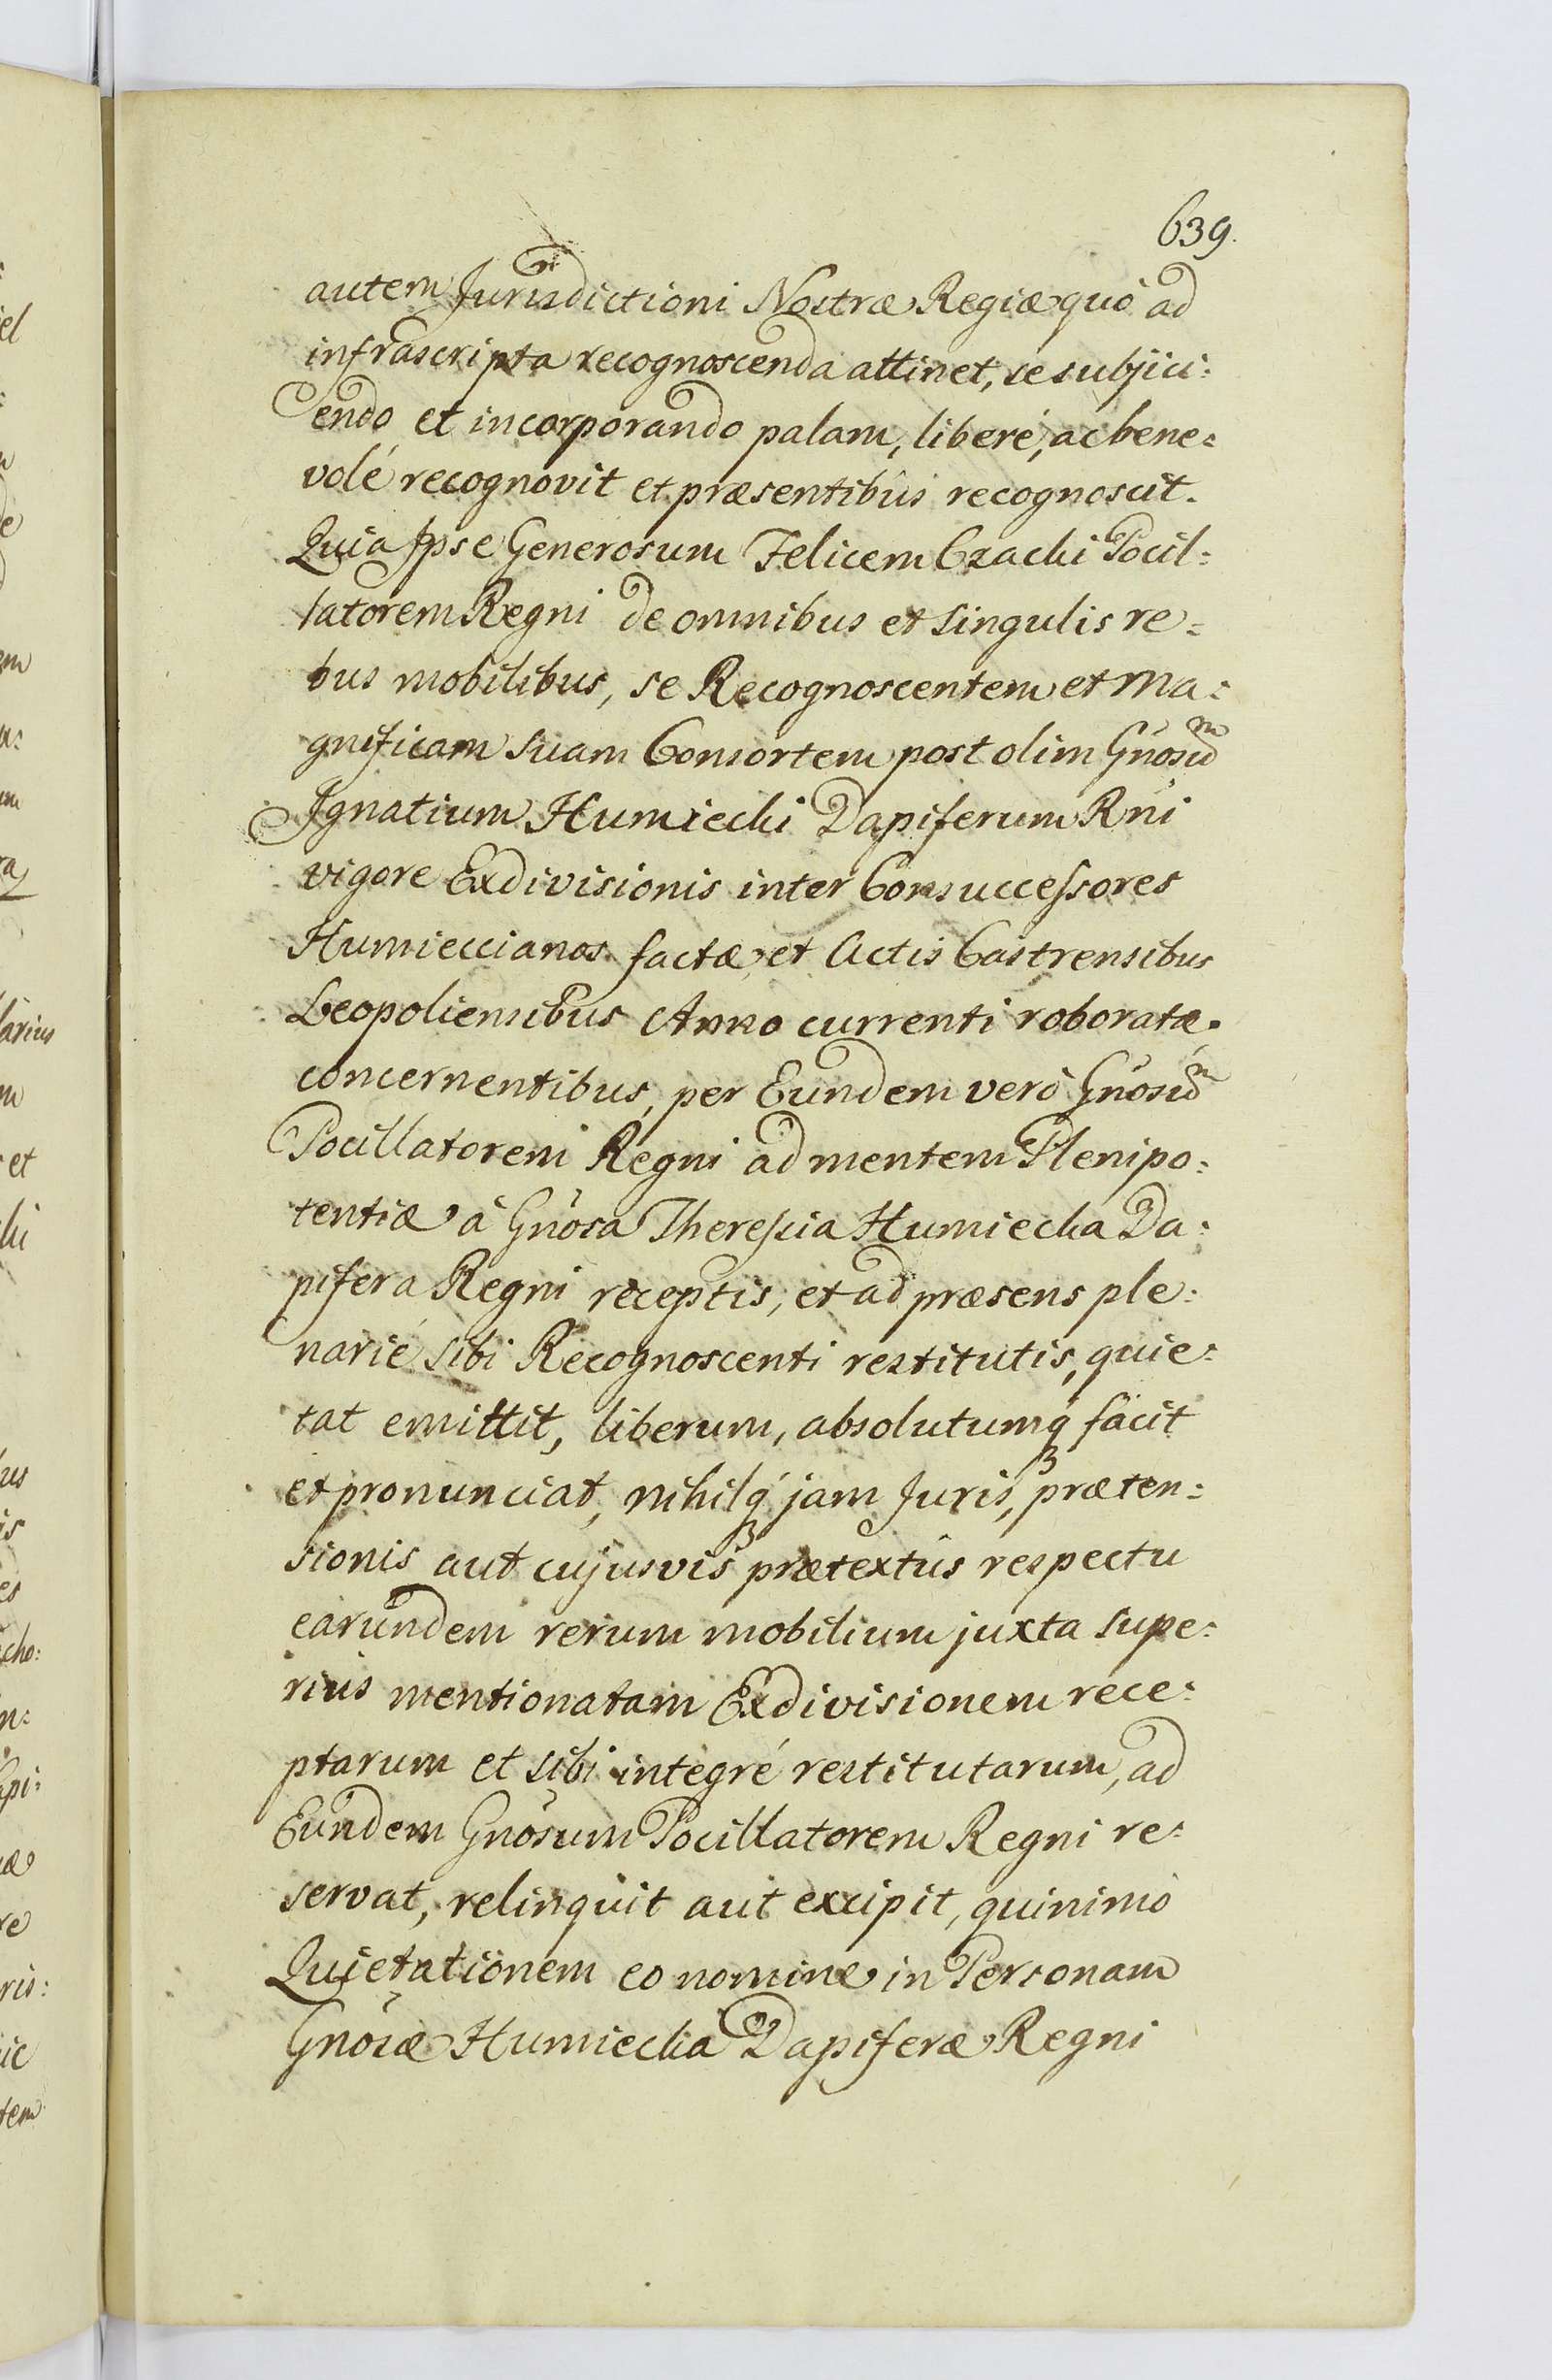 639.
autem Jurisdictioni Nostræ Regiæ quò ad
infrascripta recognoscenda attinet, se subjici:
endo et incorporando palam, liberé, ac bene:
volé recognovit et præsentibûs recognoscit.
Quia Ipse Generosum Felicem Czacki Pocil:
latorem Regni de omnibus et singulis re:
bus mobilibus, se Recognoscentem et Ma:
gnificam suam Consortem post olim Gnosum
Ignatium Humiecki Dapiferum Rni
vigore Exdivisionis inter Consuccessores
Humieccianos factæ et Actis Castrensibus
Leopoliensibus Anno currenti roboratæ.
concernentibus, per Eundem verò Gnosum
Pocillatorem Regni ad mentem Plenipo:
tentiæ à Gnosa Theressia Humiecka Da:
pifera Regni receptis, et ad præsens ple:
narié sibi Recognoscenti restitutis, quie:
tat emittit, liberum, absolutumq́ꝫ facit
et pronunciat, nihilq́ꝫ jam Juris, præten:
sionis aut cujusvis prætextûs respectu
earundem rerum mobilium juxta supe:
rius mentionatam Exdivisionem rece:
ptarum et sibi integré restitutarum, ad
Eundem Gnosum Pocillatorem Regni re:
servat, relinquit aut excipit, quinimò
Quietationem eo nomine in Personam
Gnosæ Humiecka Dapiferæ Regni